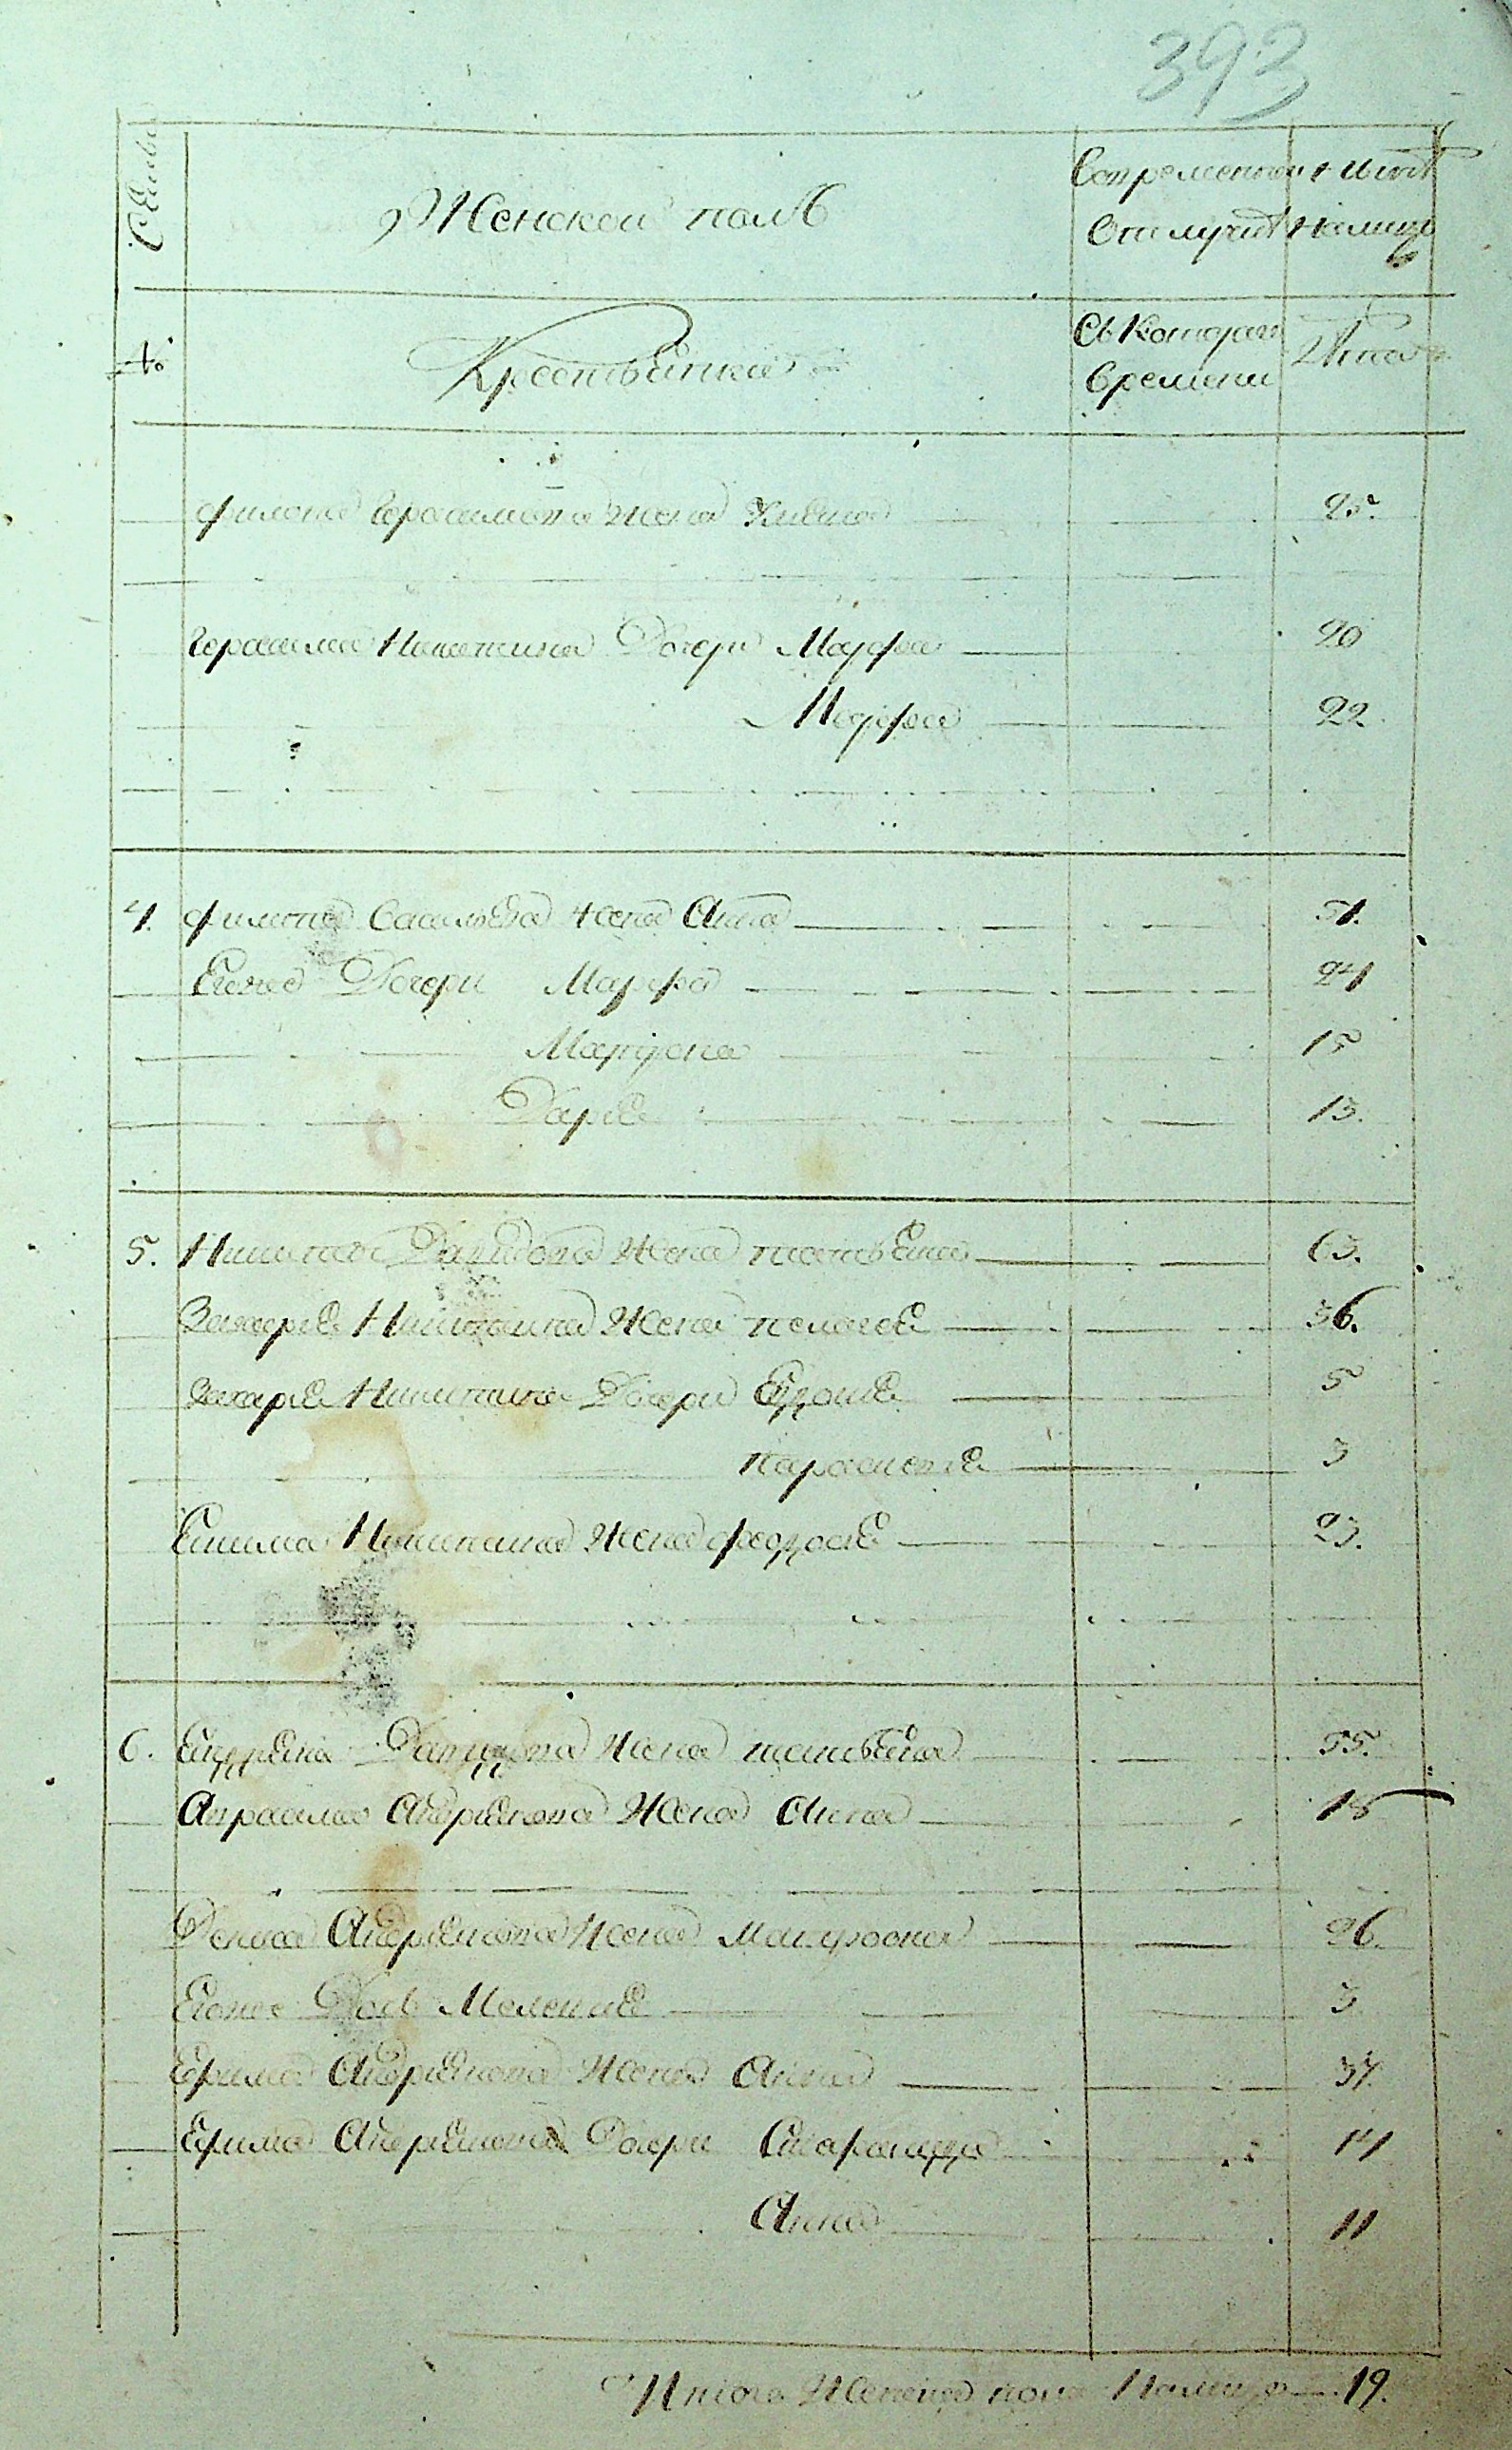 393
Семьи
Женской полъ
Во временной
отлучке
Ныне
налицо
№
Крестьянка
Съ которого
времени
Лета
Филипа Герасимова жена 25.
Герасима Никитина дочери Марфа 20
Марфа 22
4. Филипа Васильева жена Анна 51.
Его же дочери Марфа 24
Матрена 15
Дарья 13.
5. Никиты Давыдова жена Татьяна 63.
Захарья Никитина жена Пелагея 36.
Захарья Никитина дочери 5
Парасковья 3
Никитина жена Федосья 23.
6. Давыдова жена Татьяна 55.
Абрама Андреянова жена Анна 18
Дениса Андреянова жена Матрона 26.
Его же дочь Меланья 3
Ефима Андреянова жена Анна 37.
Ефима Андреянова дочери 14
Анна 11
Итого женска пола налицо 19.